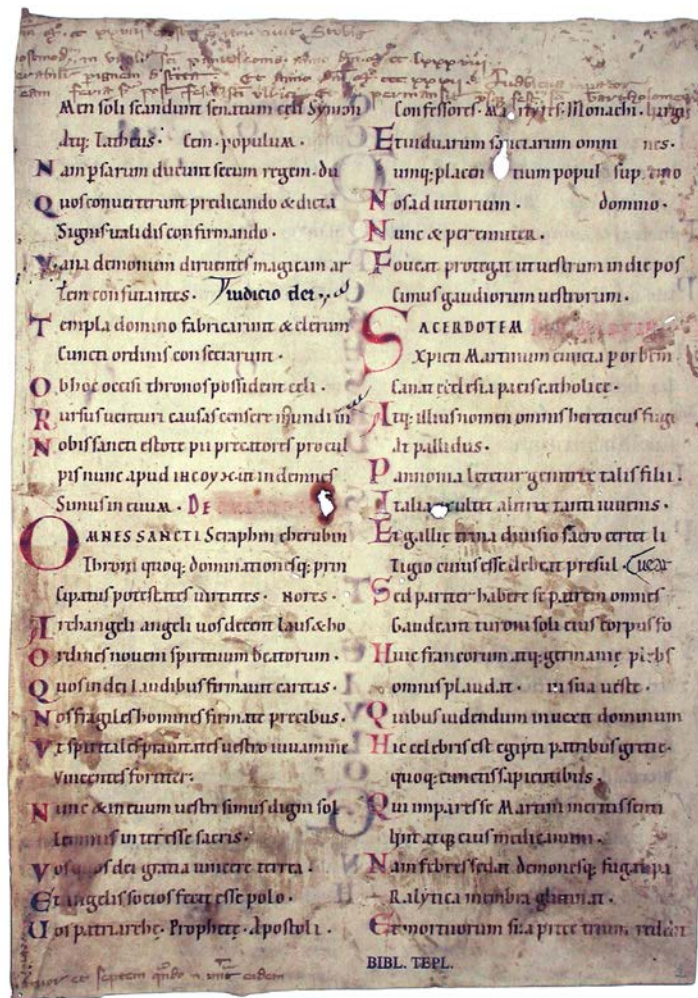 Men soli scandunt senatum celi Symon
Atq: Tatheus. Cem. populum.
Nam psarum ducunt secum regem. du
Quos converterunt predicando & dicta
Signis validis confirmando.
Vana demonum diruentes magicam ar
tem confutantes. Iudicio dei
Templa domino fabricarunt & clerum
Cuncti ordinis consecrarunt.
Ob hoc occisi thronos possident celi.
Rursus venturi causas censere mundi in
Nobis sancti estote pii precatores pro cul
pis nunc apud
Simus in evum. DE
OMNES SANCTI Seraphin cherubin
Throni quoq: dominationesq: prin
cipatus potestates virtutes. nores.
Archangeli angeli vos decent laus & ho
Ordines noveni spirituum beatorum.
Quos in dei laudibus firmavit caritas.
Nos fragiles homines firmate precibus.
Vt spiritales pravitates vestro iuvamine
Vincentes fortiter.
Nunc & in evum vestri simus digni sol
lemniis interesse sacris.
Vos quos dei gratia vincere terrea.
Et angelis socios fecit esse polo.
Vos patriarche. Prophete. Apostoli.
Confessores. Martyres. Monachi. virgi
Et viduarum sanctarum omni nes.
umq: placen tium popul sup mo
Nos adiutorium. domino.
Nunc & perenniter.
Foveat protegat ut vestrum in die pos
cimus gaudiorum vestrorum.
SACERDOTEM
Xpicti Martinum cuncta per orbem
Canat ecclesia pacis catholice.
Atq: illius nomen omnis hereticus fugi
at pallidus.
Pannonia letetur genitrix talis filii.
Italia exultet altrix tanti iuvenis.
Et gallie trina divisio sacro certet li
tigio cuius esse debeat presul.
Sed pariter habere se patrem omnes
Gaudeant turoni soli eius corpus fo
Huic francorum atq: germanie plebs
omnis plaudat. in sua veste.
Quibus videndum invexit dominum
Hic celebris est egipti patribus grecie.
quoq: cunctis sapientibus.
Qui impares se Martini meritis senti
unt atq: eius medicamini.
Nam febres sedat demonesq: fugat pa
Ralytica membra glutinat.
Et mortuorum sua prece trium reddit
BIBL. TEPL.